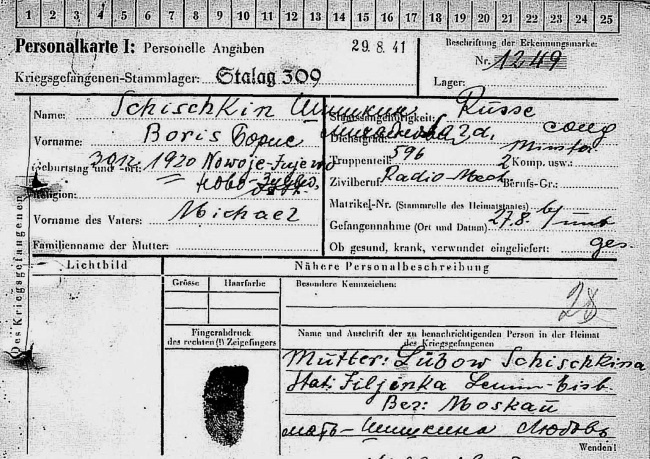 1 2 3 4 5 6 7 8 9 10 11 12 13 14 15 16 17 18 19 20 21 22 23 24 25
Personalkarte I: Personelle Angaben
29. 8. 41
Beschriftung der Erkennungsmarke:
Nr. 1249
Kriegsgefangenen-Stammlager: Stalag 309
Lager:
Des Kriegsgefangenen
Name: Schischkin Шишкин
Vorname: Boris Борис
Geburtstag und -ort: 1920 Nowoje-
Ново-
Religion:
Vorname des Vaters: Michael
Familienname der Mutter:
Staatsangehörigkeit: Russe
Dienstgrad:
Truppenteil: 596 Komp. usw.: 2
Zivilberuf: Radio Mech Berufs-Gr.:
Matrikel-Nr. (Stammrolle des Heimatstaates)
Gefangennahme (Ort und Datum) 27.8.
Ob gesund, krank, verwundet eingeliefert: ges.
Lichtbild
Nähere Personalbeschreibung
Grösse Haarfarbe
Besondere Kennzeichen:
28
Fingerabdruck
des rechten (!) Zeigefingers
Name und Anschrift der zu benachrichtigenden Person in der Heimat
des Kriegsgefangenen
Mutter: Lübow Schischkina
Stat: Filjonka
Bez: Moskau
мать - Шишкина Любовь
Wenden!